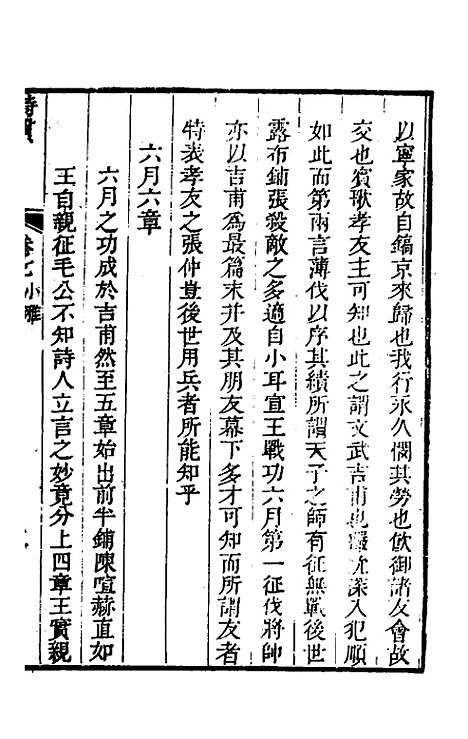 以寧家故自鎬京來歸也我行永久憫其勞也飲御諸友會故
交也賓歌孝友主可知也此之謂文武吉甫也玁狁深入犯順
如此而第兩言薄伐以序其績所謂天子之師有征無戰後世
露布鋪張殺敵之多適自小耳宣王戰功六月第一征伐將帥
亦以吉甫爲最篇末并及其朋友幕下多才可知而所謂友者
特表孝友之張仲豈後世用兵者所能知乎
六月六章
六月之功成於吉甫然至五章始出前半鋪陳喧赫直如
王自親征毛公不知詩人立言之妙竟分上四章王實親
詩貫
卷七 小雅